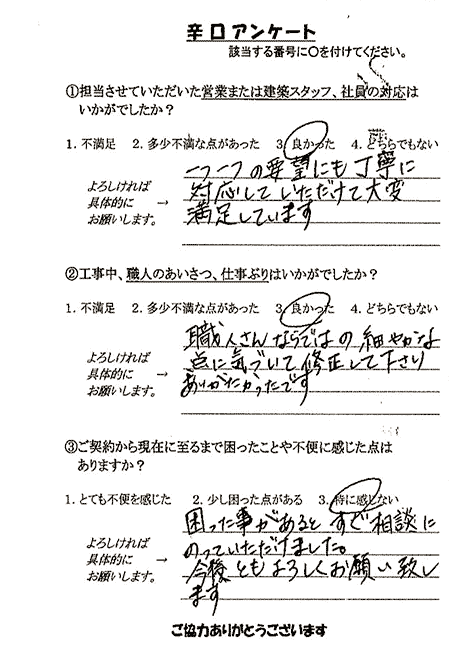 辛口アンケート
該当する番号に○を付けてください。
①担当させていただいた営業または建築スタッフ、社員の対応は
いかがでしたか？
1. 不満足　2. 多少不満な点があった　3. 良かった　4. どちらでもない
一つ一つの要望にも丁寧に
よろしければ
具体的に　→
お願いします。
対応していただけて大変
満足しています
②工事中、職人のあいさつ、仕事ぶりはいかがでしたか？
1. 不満足　2. 多少不満な点があった　3. 良かった　4. どちらでもない
職人さんならではの細やかな
よろしければ
具体的に　→
お願いします。
点に気づいて修正して下さり
ありがたかったです
③ご契約から現在に至るまで困ったことや不便に感じた点は
ありますか？
1. とても不便を感じた　2. 少し困った点がある　3. 特に感じない
困った事があるとすぐ相談に
よろしければ
具体的に　→
お願いします。
のっていただけました。
今後ともよろしくお願い致し
ます
ご協力ありがとうございます